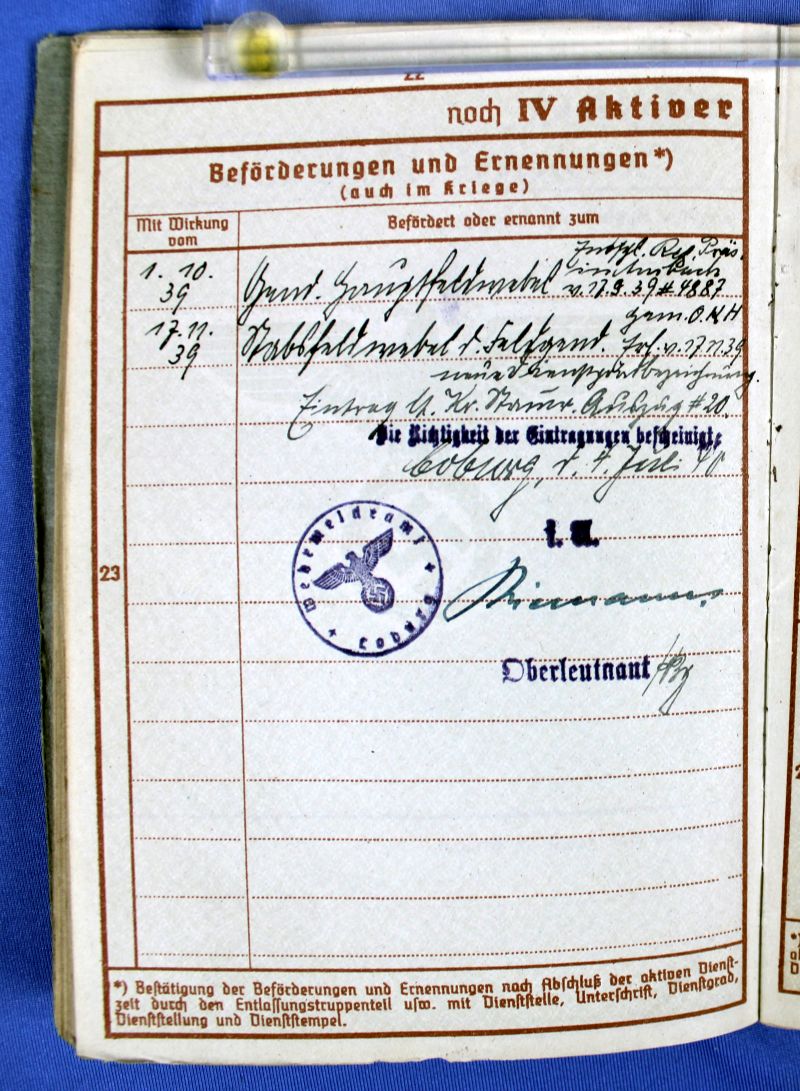 22
noch IV Aktiver
Beförderungen und Ernennungen*)
(auch im Kriege)
Mit Wirkung vom
Befördert oder ernannt zum
1. 10. 39
Gend. Hauptfeldwebel
v. 17.9.39 # 4887
17. 11. 39
Gem. O.K.H
Stabsfeldwebel d. Feldgend. Erl. v. 17.11.39
neue Dienstgradbezeichnung.
Eintrag lt. Kr. Stammr. Auszug # 20.
Die Richtigkeit der Eintragungen bescheinigt:
Coburg, d. 4. Juli 40
I. A.
23
Wehrmeldeamt
Coburg
Oberleutnant
*) Bestätigung der Beförderungen und Ernennungen nach Abschluß der aktiven Dienst-
zeit durch den Entlassungstruppenteil usw. mit Dienststelle, Unterschrift, Dienstgrad,
Dienststellung und Dienststempel.